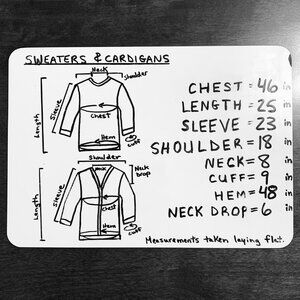 SWEATERS & CARDIGANS
Neck
Shoulder
Sleeve
Length
Chest
Hem
Cuff
Shoulder
Neck drop
Sleeve
Length
Chest
Hem
Cuff
CHEST = 46 in
LENGTH = 25 in
SLEEVE = 23 in
SHOULDER = 18 in
NECK = 8 in
CUFF = 9 in
HEM = 48 in
NECK DROP = 6 in
Measurements taken laying flat.